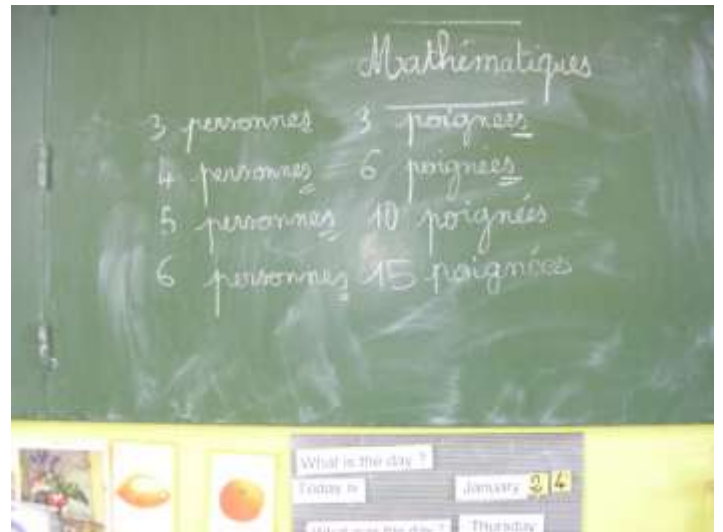 Mathématiques
3 personnes 3 poignées
4 personnes 6 poignées
5 personnes 10 poignées
6 personnes 15 poignées
What is the day ?
Today is January 24
What was the day ? Thursday